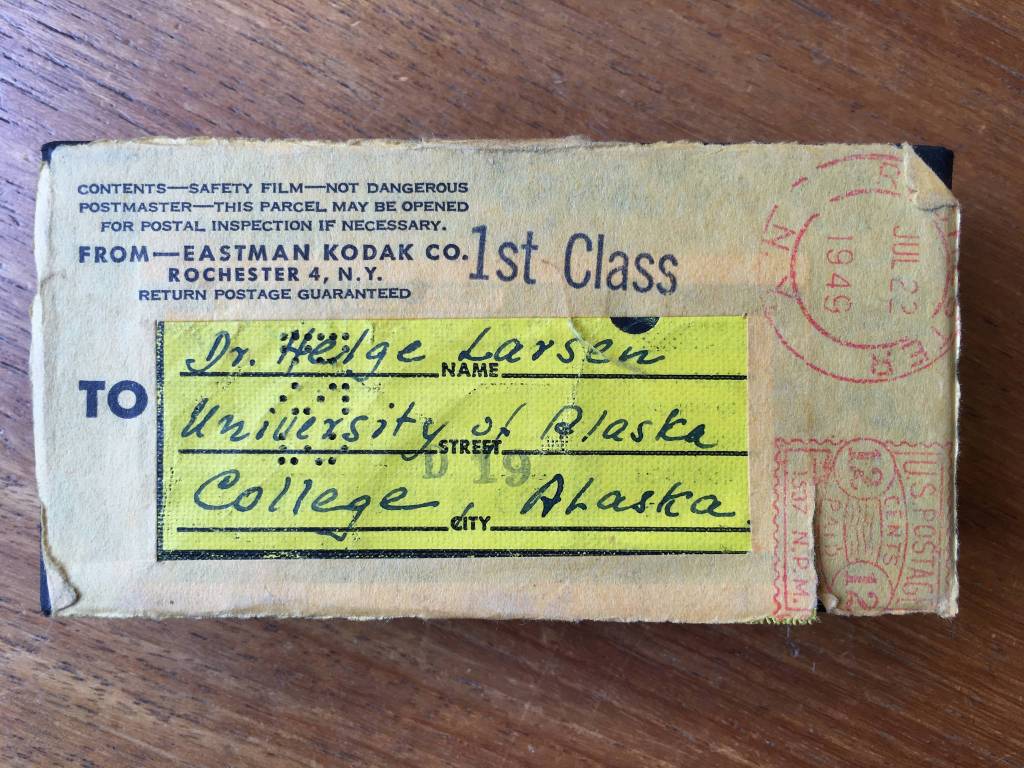 CONTENTS—SAFETY FILM—NOT DANGEROUS
POSTMASTER—THIS PARCEL MAY BE OPENED
FOR POSTAL INSPECTION IF NECESSARY.
FROM—EASTMAN KODAK CO.
ROCHESTER 4, N.Y.
RETURN POSTAGE GUARANTEED
1st Class
TO
Dr. Helge Larsen
NAME
University of Alaska
STREET
D 19
College, Alaska
CITY
JUL 22
1949
N.Y.
U.S. POSTAG
12
CENTS
PAID
12
N.P.M.